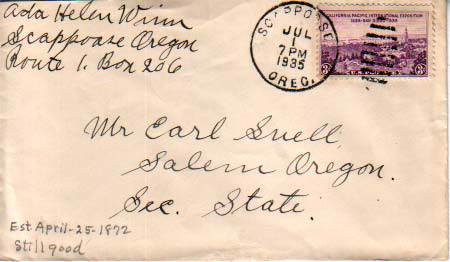 Ada Helen Winn
Scappoose Oregon
Route 1. Box 206
SCAPPOOSE
JUL
7 PM
1935
OREG.
CALIFORNIA PACIFIC INTERNATIONAL EXPOSITION
SAN DIEGO
3
3
Mr Earl Snell
Salem Oregon.
Sec. State.
Est April-25-1872
Still good